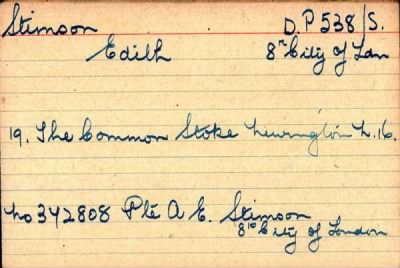 Stimson D.P 538/S.
Edith 8th City of Lon
19. The Common Stoke Newington N. 16.
No 342808 Pte A E. Stimson
8th City of London